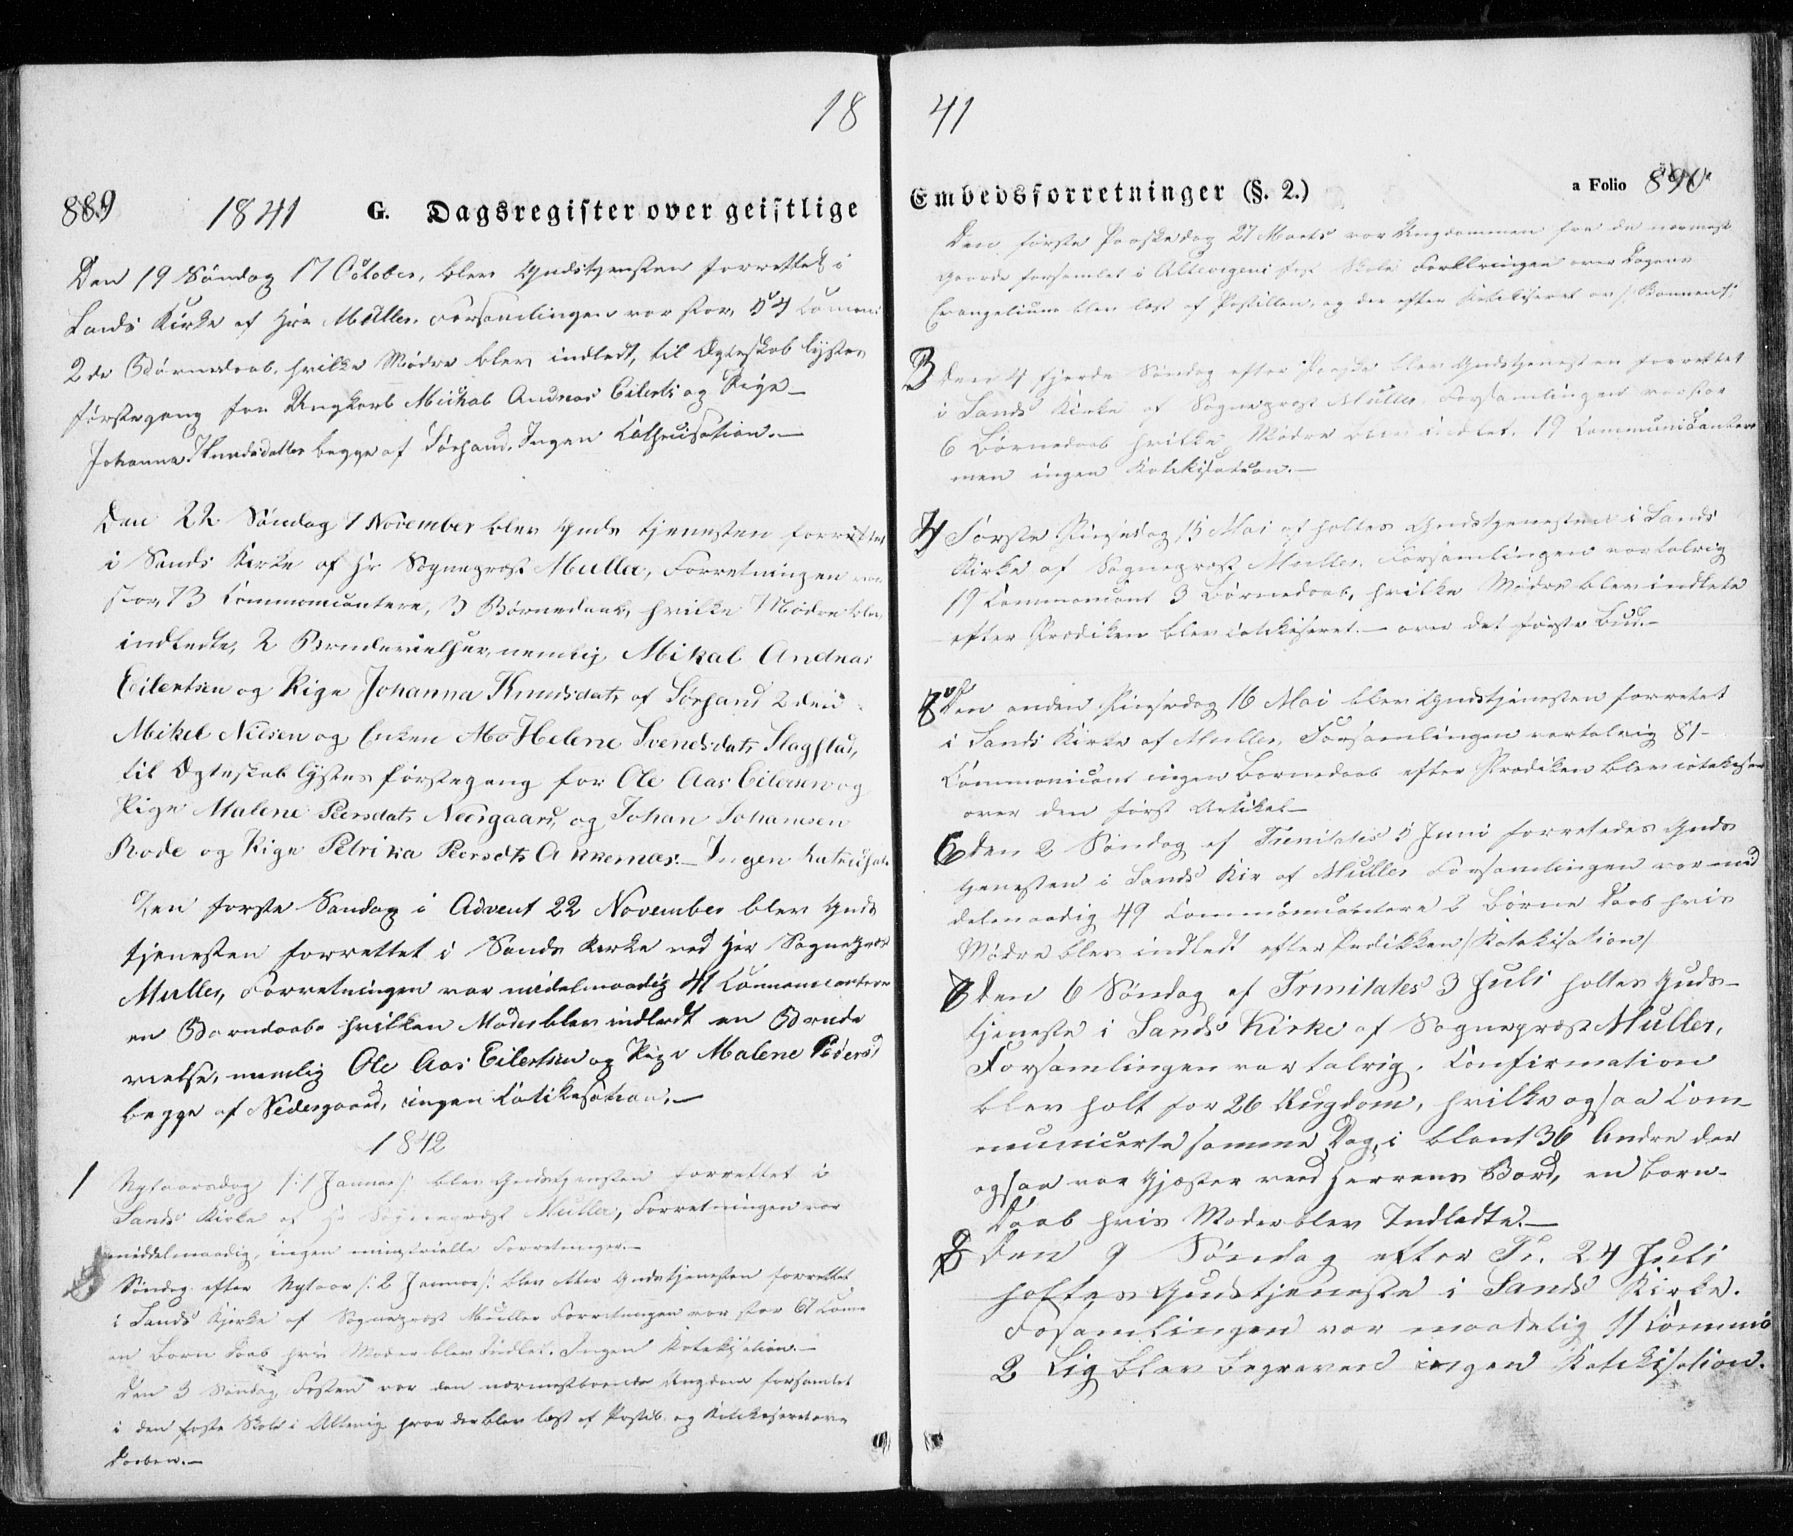 18
889 1841 G. Dagsregister over geistlige
Den 19 Søndag 17 October, blev Gudstjensten forrettet i
Sands Kirke af Hrr Müller, Forsamlingen var stor, 54 Comuni
2de Børnedaab, hvilke Mødre blev indledt, til Ægteskab lystes
førstegang for Ungkarl Mickal Andreas Eilerts og Pige
Johanna Knudsdatter begge af Sørsand. Ingen Cathecisation.—
Den 22 Søndag 7 November blev Guds tjenesten forrettet
i Sands Kirke af Hr Sogneprost Muller, Forretningen var
stor, 73 Commonicantere, 3 Børnedaab, hvilke Mødre blev
indledte, 2 Brudevielser, nemlig Mikal Andreas
Eilertsen og Pige Johanna Knudsdatr af Sørsand 2den
Mikel Nilsen og Enken Helene Svendsdatr Slagstad,
til Ægteskab lystes førstegang for Ole Aas Eilersen og
Pige Malene Peersdatr Neergaard, og Johan Johannesen
Rode og Pige Petrika Peersdtr Akkernæs.— Ingen
Den første Søndag i Advent 22 November blev Guds
tjenesten forrettet i Sands Kirke ved Hrr Sogneprost
Muller, Forretningen var middelmaadig 41 Commonicantere
en Barndaab hvilken Moder blev indledt en Brude
vielse, nemlig Ole Aas Eilertsen og Pige Malene Peders
begge af Nedergaard, ingen Catikesation.—
1842
1 Nytaarsdag /: 1 Januar :/ blev Gudstjensten forrettet i
Sands Kirke af Hr Sogneprost Müller, Forretningen var
middelmaadig, ingen ministrielle Forretninger.—
Søndag efter Nytaar /: 2 Januar :/ blev atter Gudstjenesten forrettet
i Sands Kirke af Sogneprost Muller Forretningen var stor 67 Come
en Barn Daab hvis Moder blev Indlet. Ingen Katekisation.—
Den 3 Søndag Fasten var den nærmestboende Ungdom forsamlet
i den faste Skole i Altevig hvor der blev læst af Postil. og Katekiseret over
Daaben.—
41
Embedsforretninger (§. 2.) a Folio 890
Den første Paaskedag 27 Marts var Ungdommen fra de nærmest
Gaarde forsamlet i Altevigens fast Skole Forklringen over Dagens
Evangelium blev læst af Postillen, og der efter Katekiseret over /: Bønnen :/
3 Den 4 fjerde Søndag efter Paaske blev Gudstjenesten forrettet
i Sands Kirke af Sogneprost Muller, Forsamlingen var stor
6 Børnedaab hvilke Mødre blev indlet, 19 Communicantere
men ingen Katekisation.—
4 Første Pinsedag 15 Mai af holtes Gudstjenesten i Sands
Kirke af Sogneprost Muller, Forsamlingen var talrig
19 Commonicant 3 Børnedaab, hvilke Mødre blev indlete
efter Prediken blev catekiseret.— over det første Bud.—
Den anden Pinsedag 16 Mai blev Gudstjenesten forretet
i Sands Kirke af Muller, Forsamlingen var talrig 81—
Commonicant ingen Barnedaab efter Prediken blev catekiser
over den først Artikel—
6 Den 2 Søndag ef Trenitatis 5 Juni forretedes Guds
tjenesten i Sands Kir af Muller Forsamlingen var mid
delmaadig 49 Commonicantere 2 Børne Daab hvis
Mødre blev indledt efter Predikken /Katekisation/
Den 6 Søndag ef Trenitates 3 Juli holtes Guds—
tjeneste i Sands Kirke af Sogneprost Muller,
Forsamlingen var talrig, Confirmation
blev holt for 26 Ungdom, hvilke ogsaa Com—
municerte samme Dag, i blant 36 Andre der
ogsaa var Gjæster ved Herrens Bord, en Barn—
Daab hvis Moder blev Indledte.—
8 Den 9 Søndag efter Tr. 24 Juli
holtes Gudstjeneste i Sands Kirke.
Fosamlingen var maadelig 11 Commu
2 Lig blev Begraven ingen Katekisation.